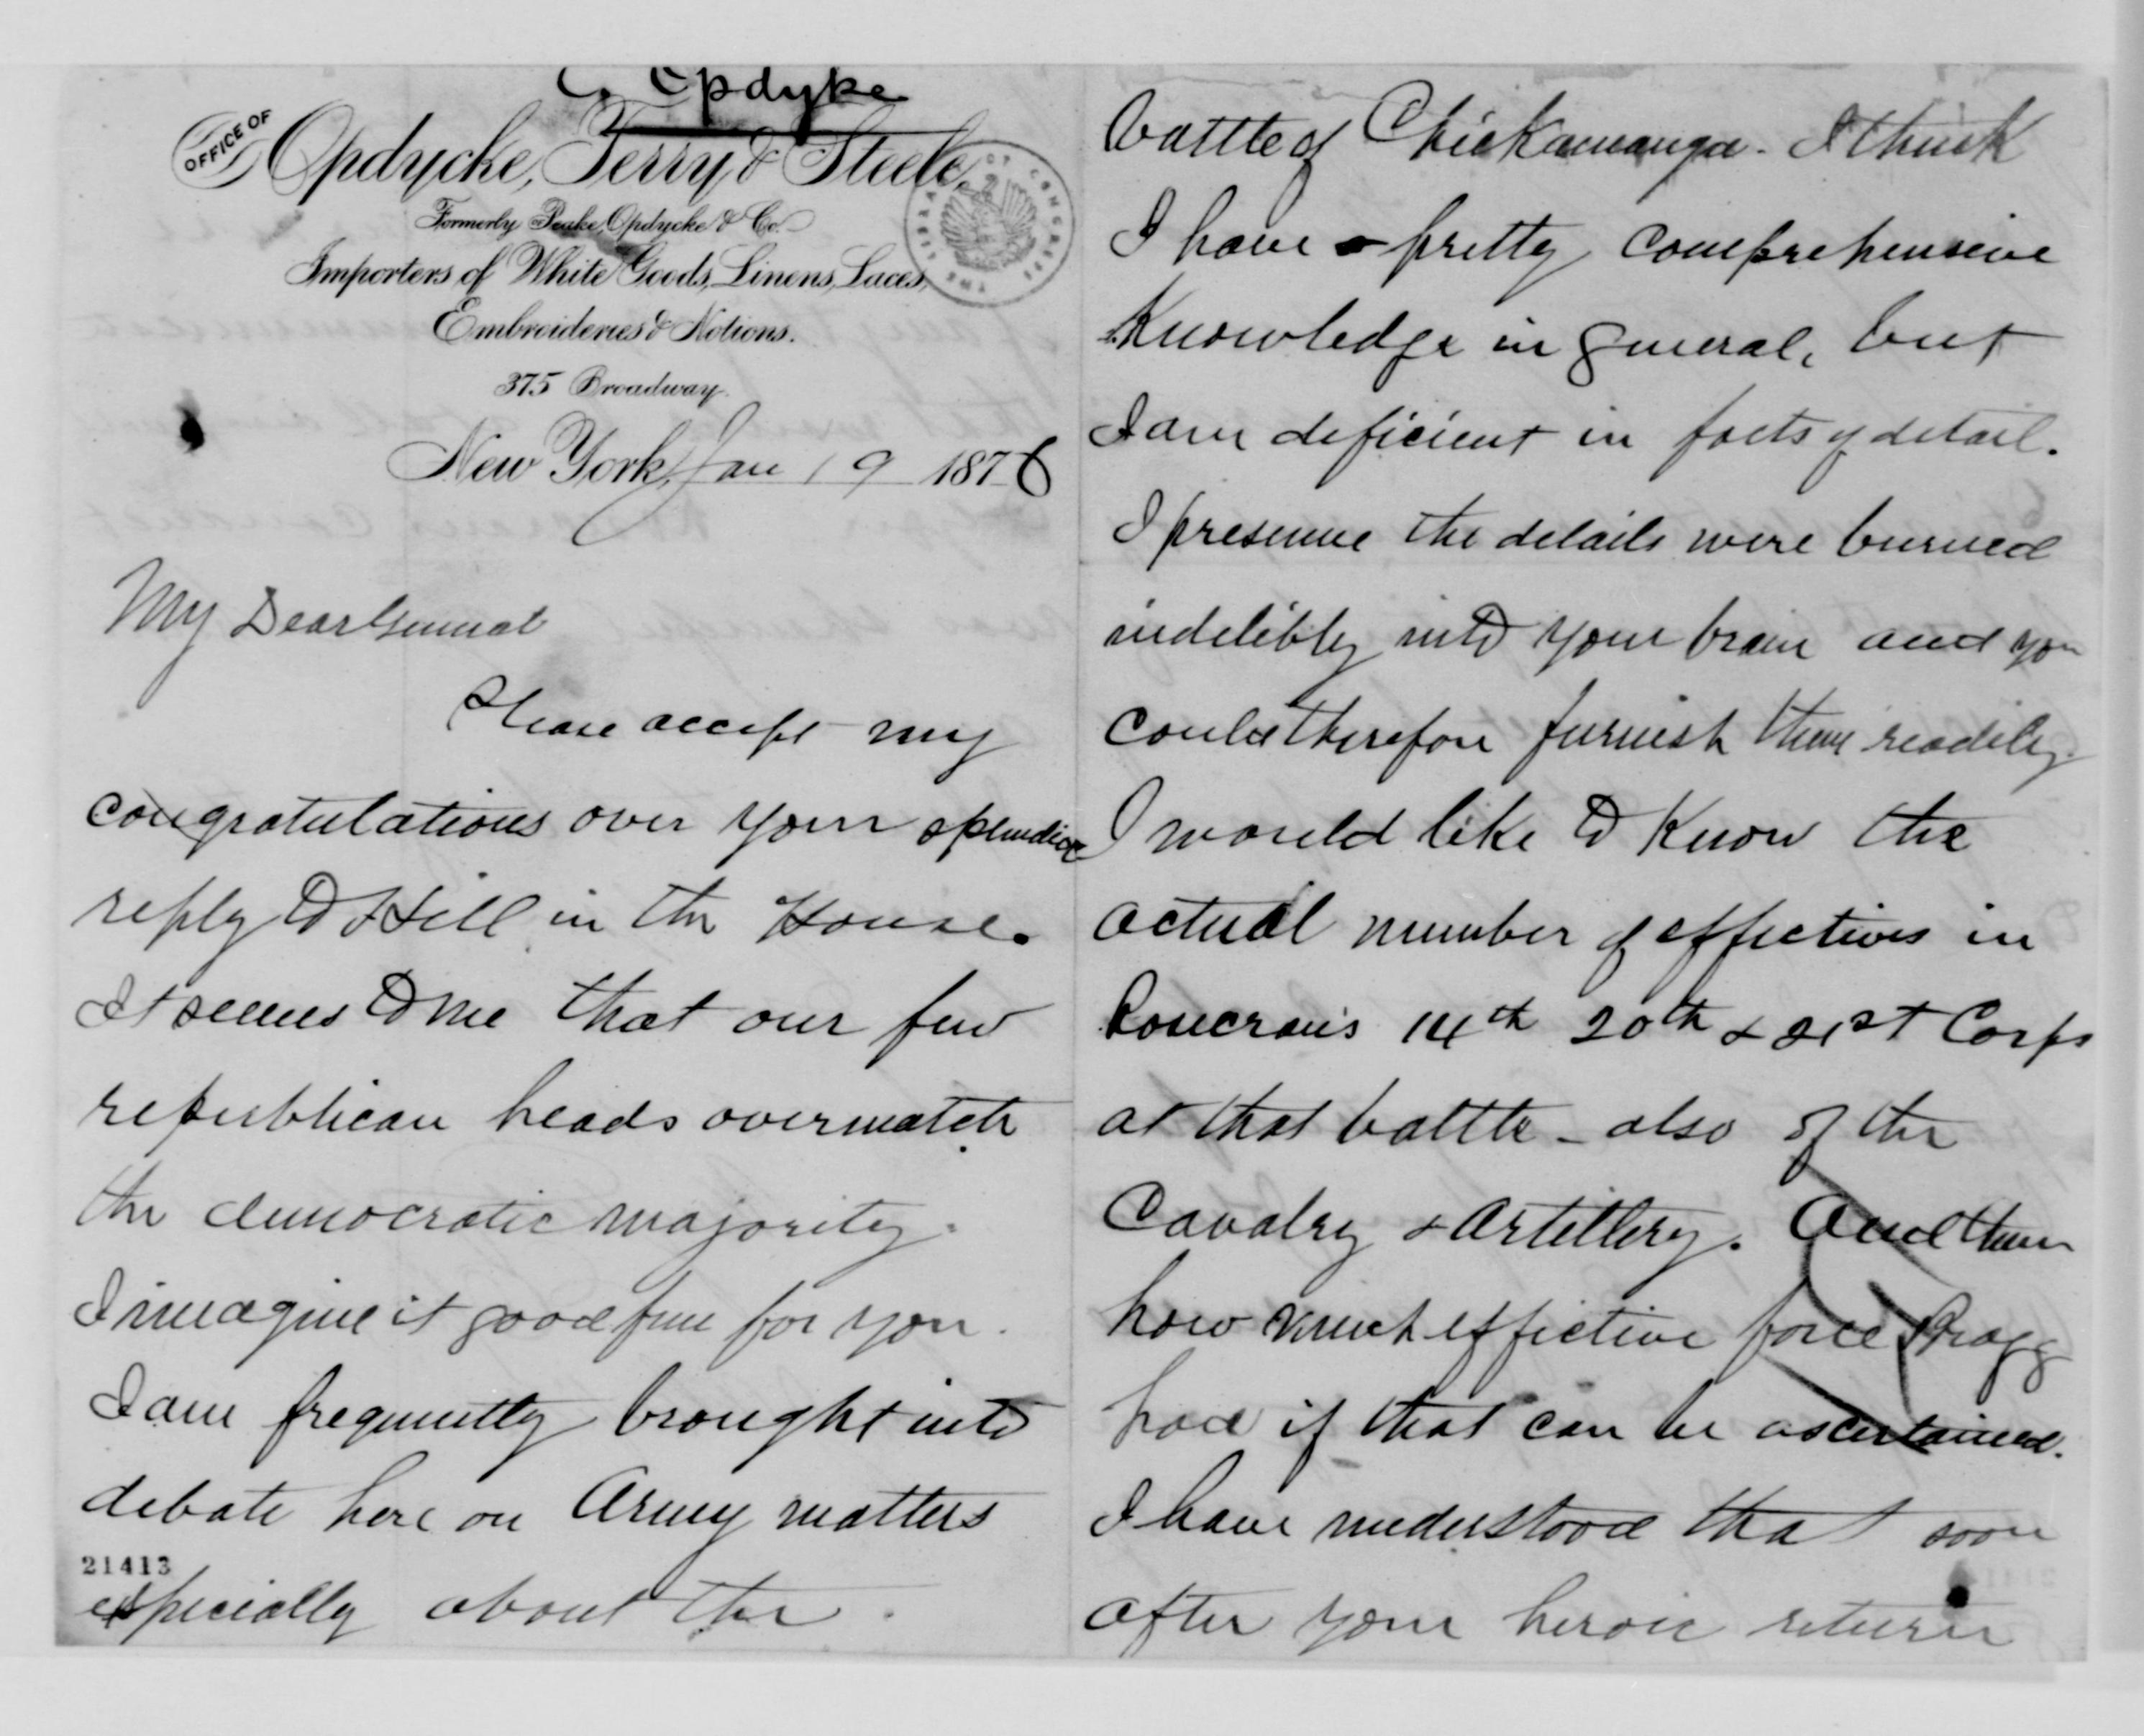 E. Opdyke
OFFICE OF
Opdycke, Terry & Steele,
Formerly Peake, Opdycke & Co.
Importers of White Goods, Linens, Laces,
Embroideries & Notions.
375 Broadway.
New York, Jan 19 1876
THE LIBRARY OF CONGRESS
My Dear General
Please accept my
congratulations over your splendid
reply to Hill in the House.
It seems to me that our few
republican heads overmatch
the democratic majority.
I imagine it good fun for you.
I am frequently brought into
debate here on Army matters
21413
especially about the
battle of Chickamauga. I think
I have a pretty comprehensive
Knowledge in general, but
I am deficient in facts of detail.
I presume the details were burned
indelibly into your brain and you
could therefore furnish them readily.
I would like to Know the
actual number of effectives in
Rosecran's 14th 20th & 21st Corps
at that battle - also of the
Cavalry & Artillery. And then
how much effective force Bragg
had if that can be ascertained.
I have understood that soon
after your heroic return